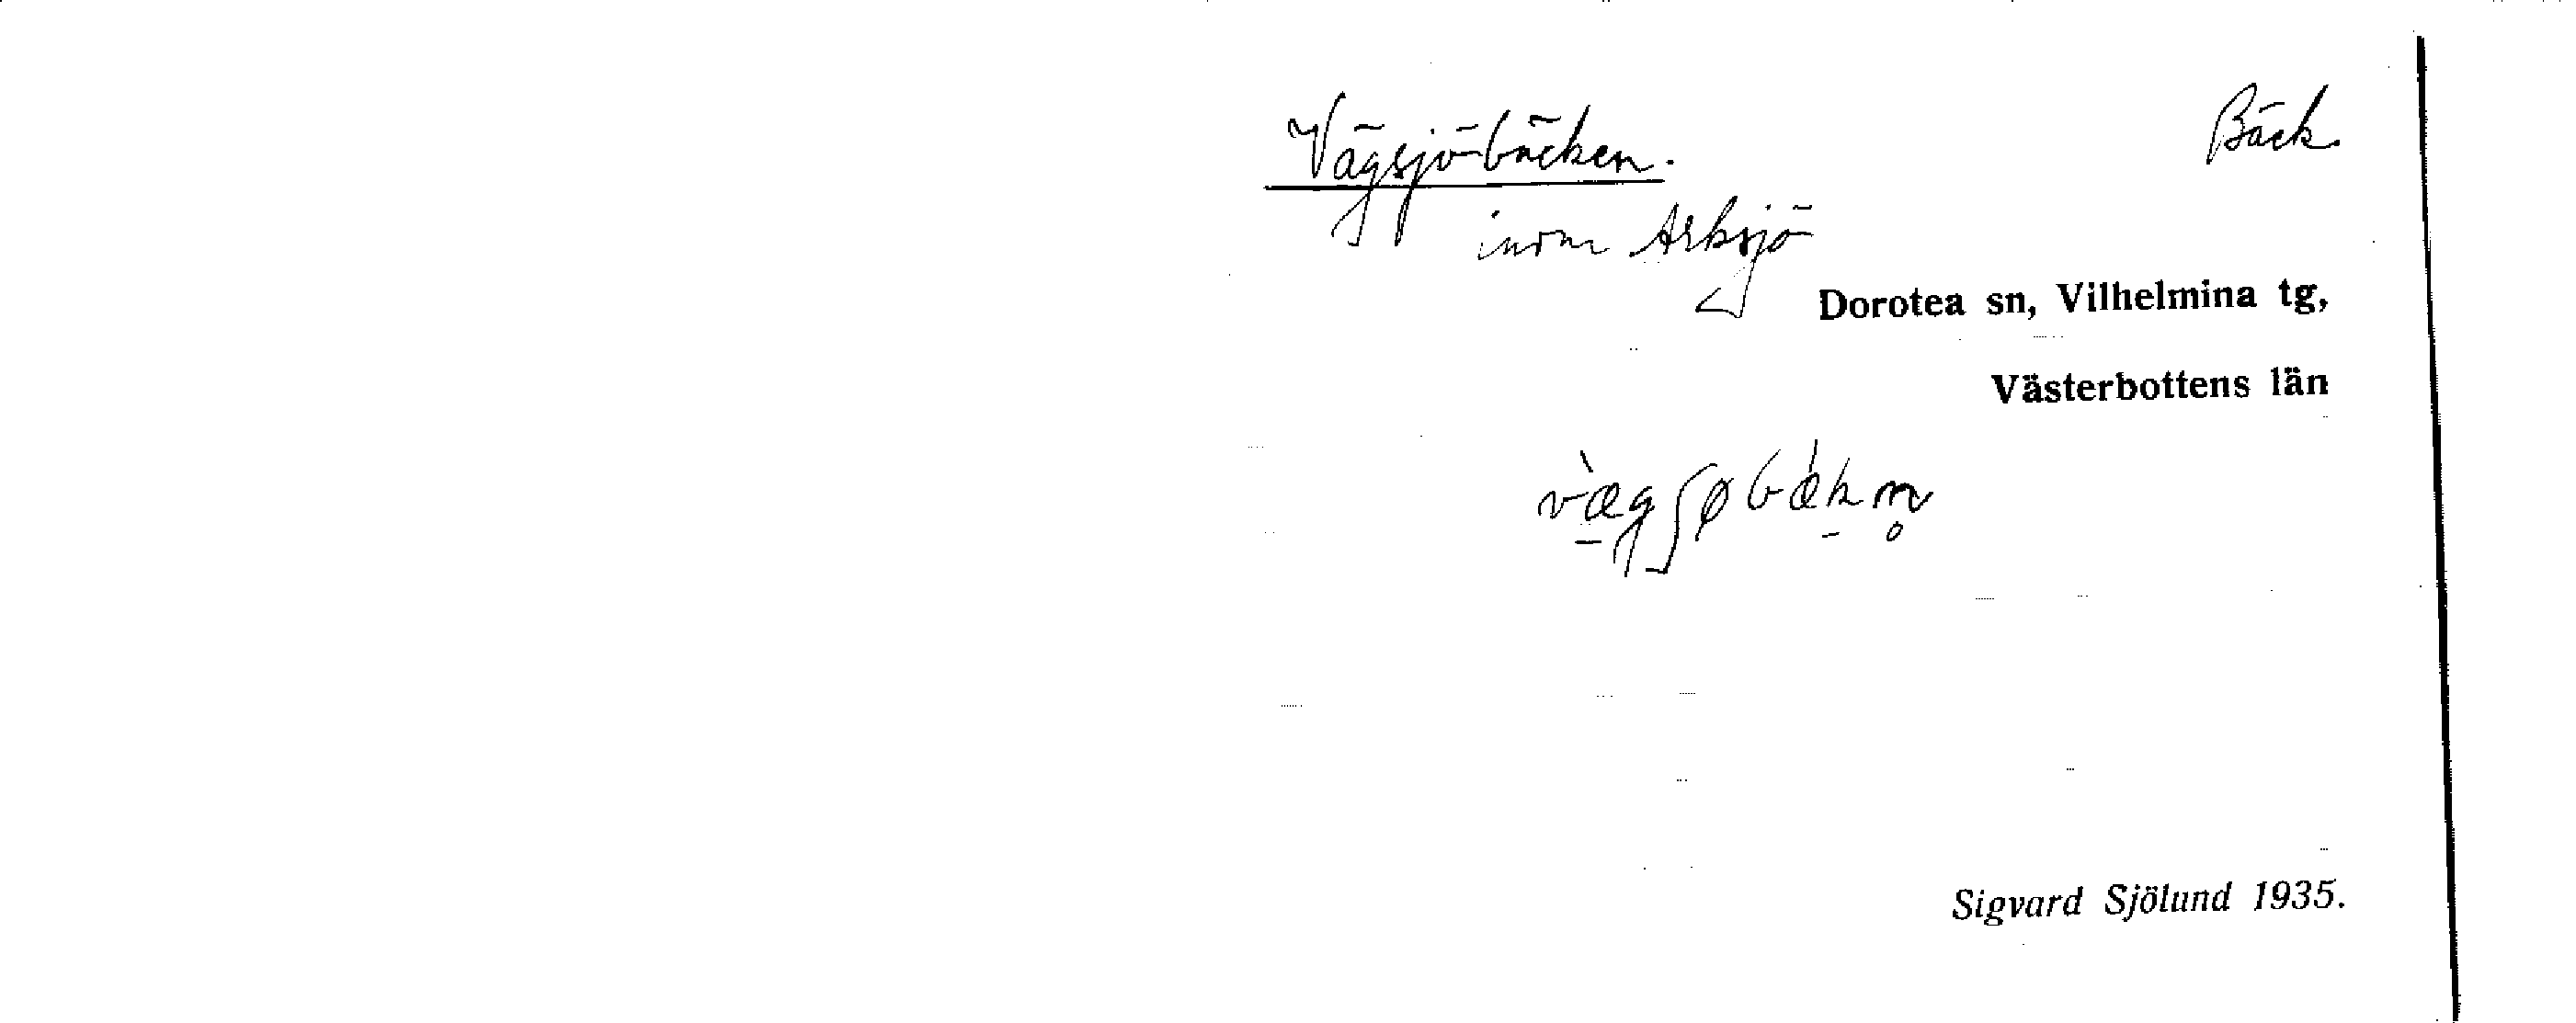 Vägsjöbäcken. Bäck.
inom Arksjö
Dorotea sn, Vilhelmina tg,
Västerbottens län
v̀ægʃøbǽkn̥
Sigvard Sjölund 1935.